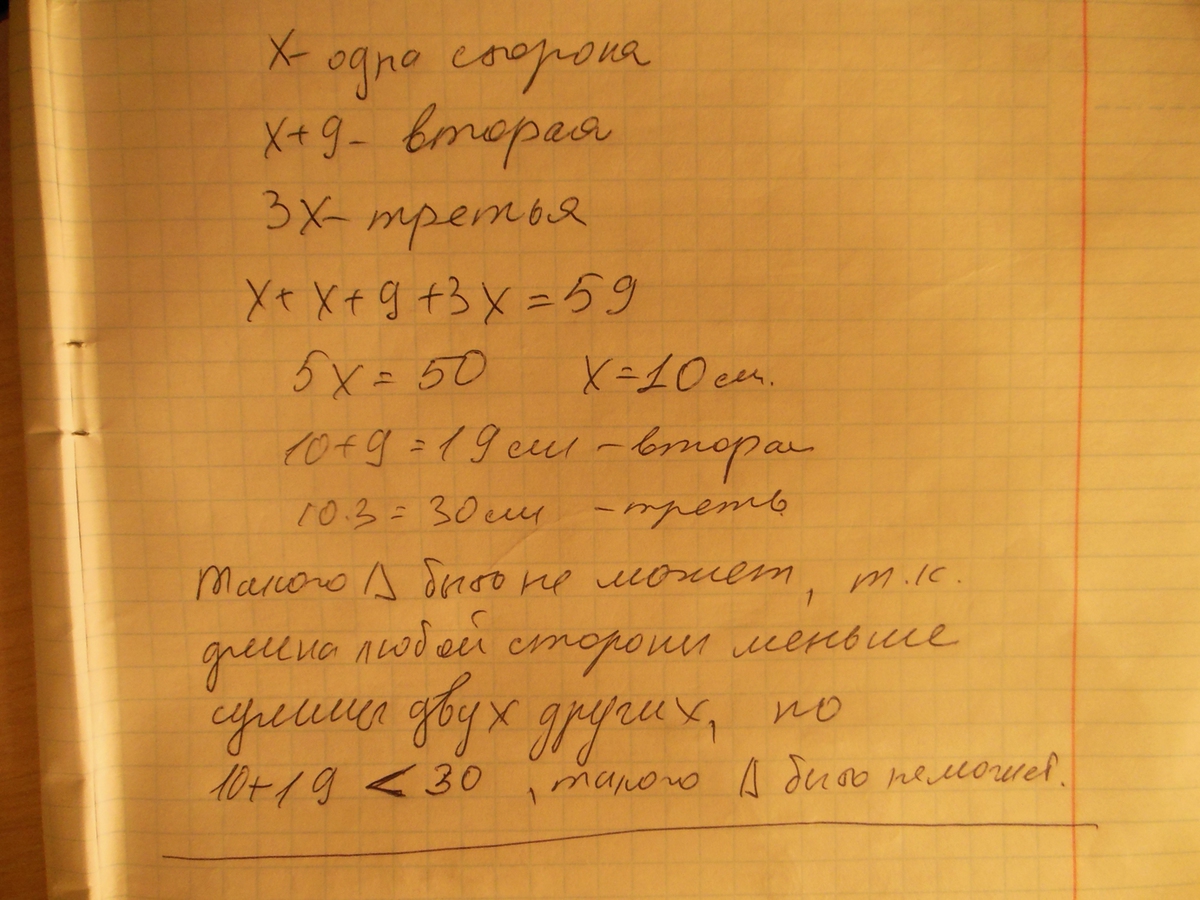 х- одна сторона
х+9- вторая
3х- третья
х+х+9+3х=59
5х=50 х=10 см.
10+9=19 см -вторая
10.3=30 см -треть
Такого Δ быть не может, т.к.
длина любой стороны меньше
суммы двух других, но
10+19 < 30 , такого Δ быть не может.